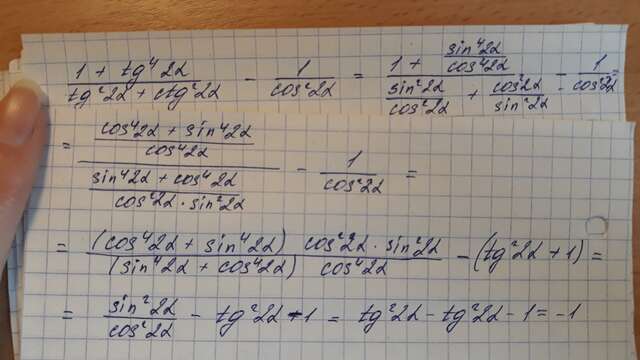 (1 + tg⁴2α)/(tg²2α + ctg²2α) - 1/(cos²2α) = (1 + sin⁴2α/cos⁴2α)/(sin²2α/cos²2α + cos²2α/sin²2α) - 1/(cos²2α) =
= ((cos⁴2α + sin⁴2α)/(cos⁴2α))/((sin⁴2α + cos⁴2α)/(cos²2α · sin²2α)) - 1/(cos²2α) =
= ((cos⁴2α + sin⁴2α) cos²2α · sin²2α)/((sin⁴2α + cos⁴2α) cos⁴2α) - (tg²2α + 1) =
= sin²2α/cos²2α - tg²2α - 1 = tg²2α - tg²2α - 1 = -1